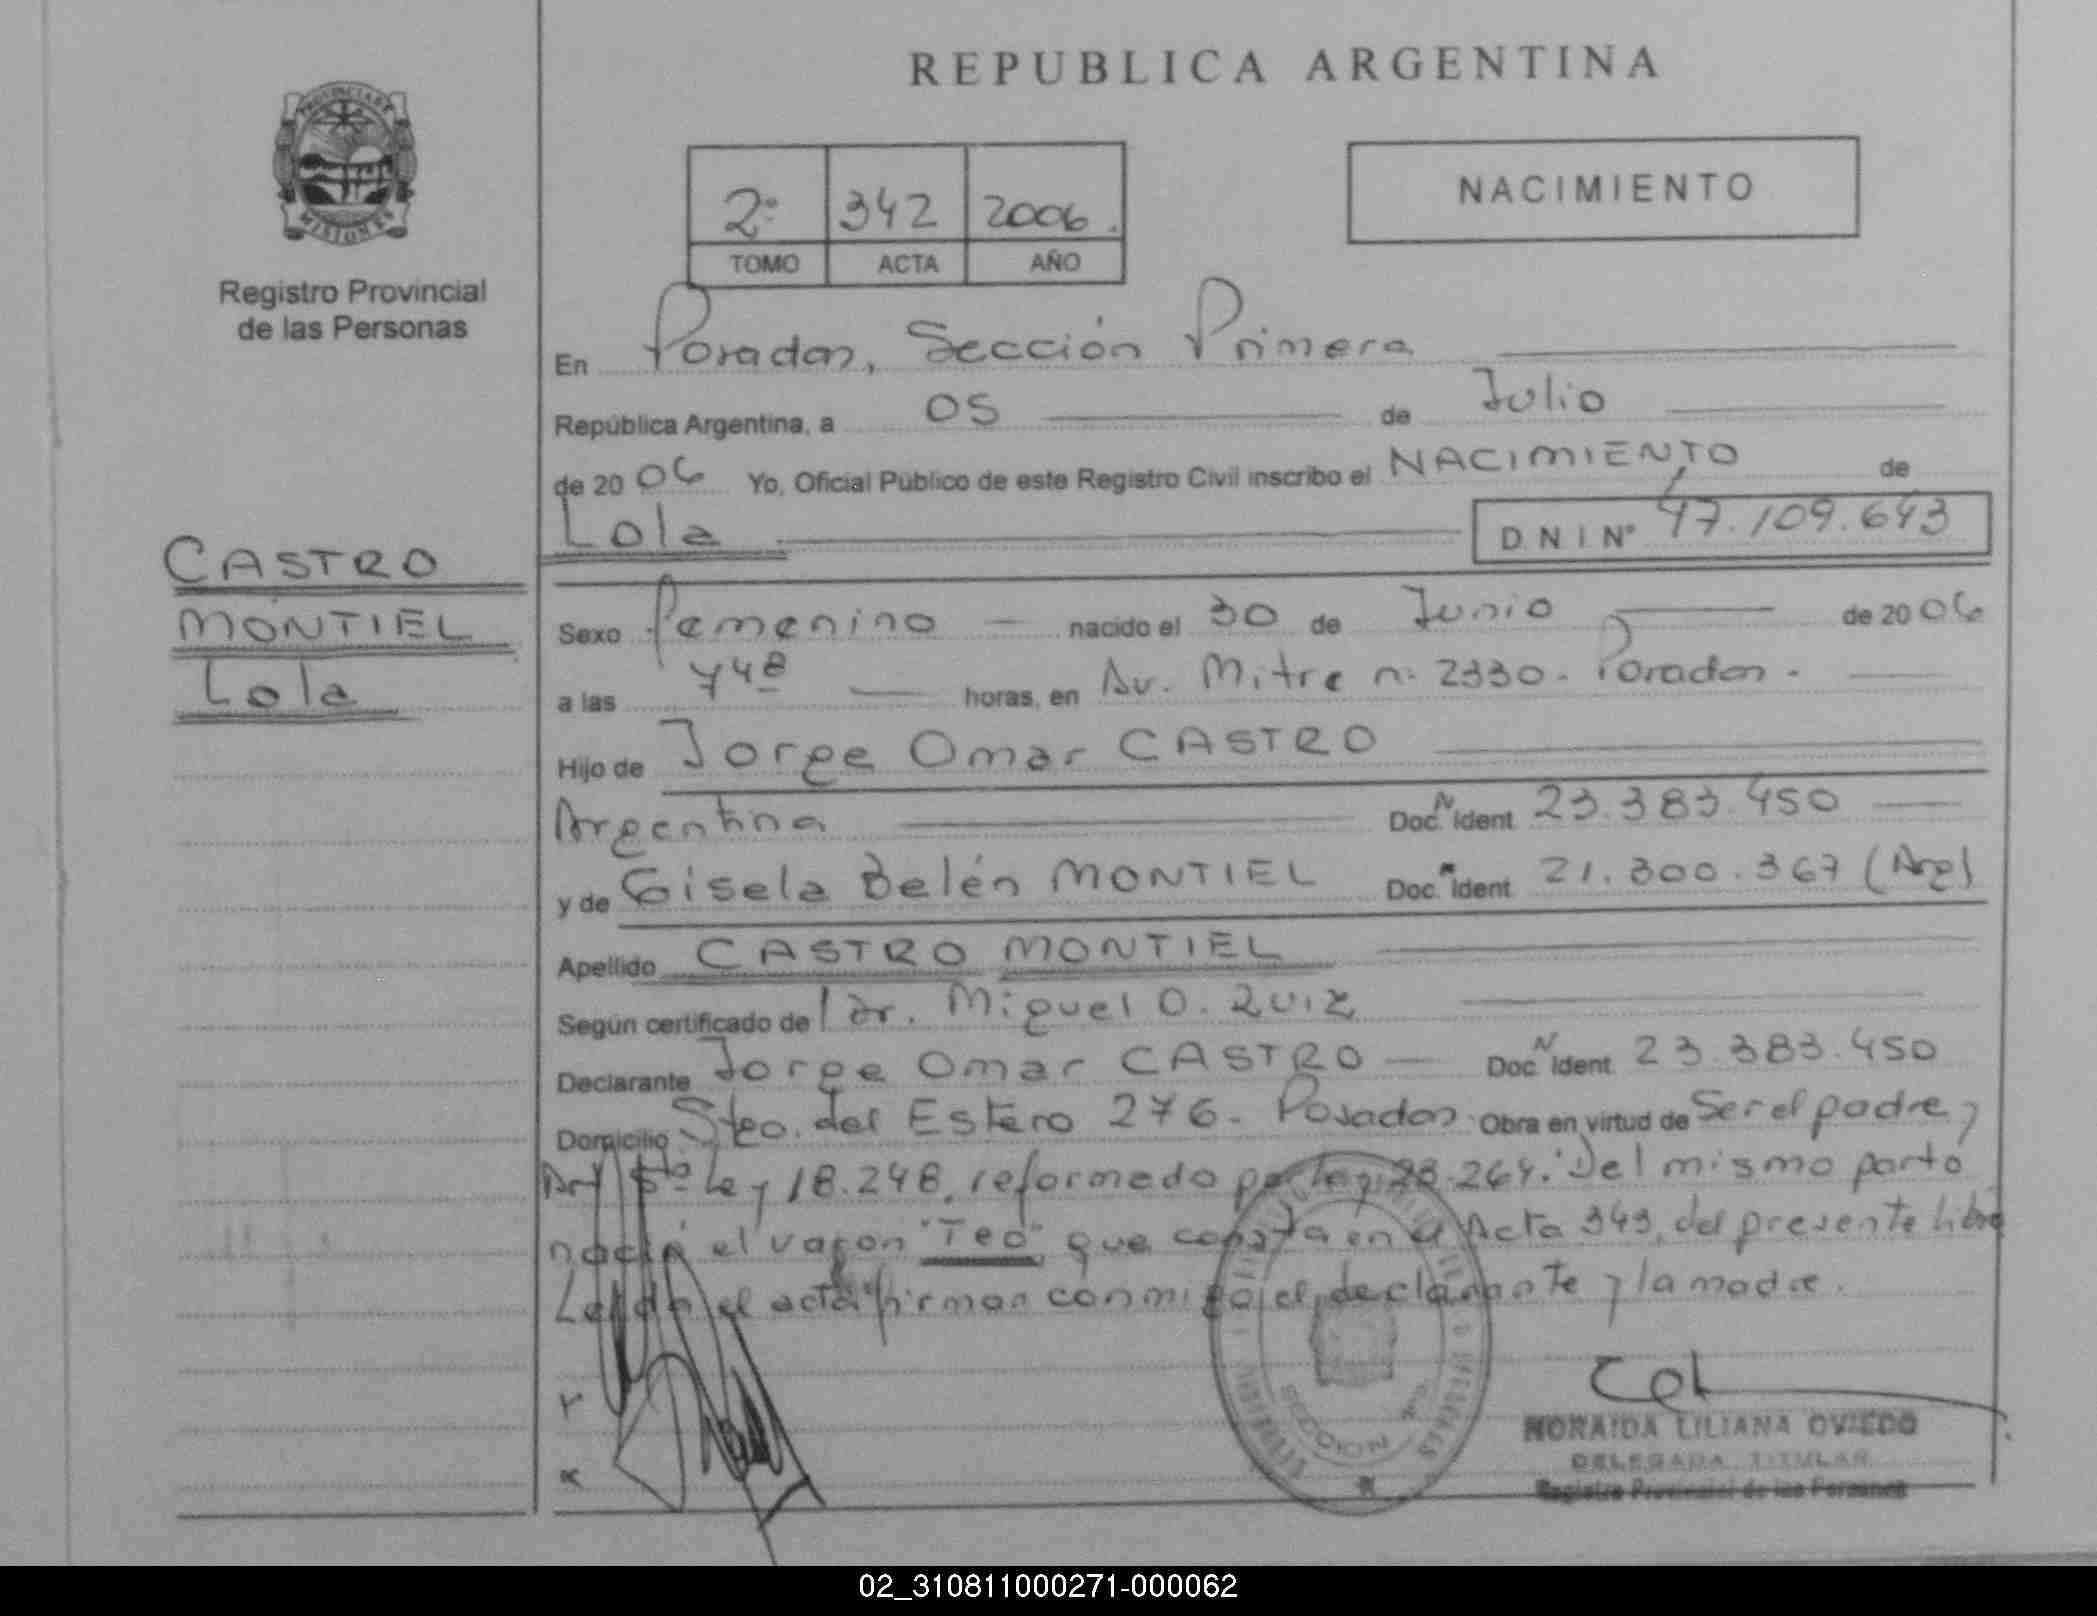 REPUBLICA ARGENTINA
PROVINCIA DE
MISIONES
Registro Provincial
de las Personas
2º 342 2006.
TOMO ACTA AÑO
NACIMIENTO
En Posadas, Sección Primera
República Argentina, a 05 de Julio
de 2006 Yo, Oficial Público de este Registro Civil inscribo el NACIMIENTO de
Lola D.N.I Nº 47.109.643
CASTRO
MONTIEL
Lola
Sexo femenino nacido el 30 de Junio de 2006
a las 748 horas, en Av. Mitre n: 2330. Posadas.
Hijo de Jorge Omar CASTRO
Argentina Doc. N Ident 23.383.450
y de Gisela Belén MONTIEL Doc. Ident 21.300.367 (Arg)
Apellido CASTRO MONTIEL
Según certificado de Dr. Miguel O. Ruiz
Declarante Jorge Omar CASTRO Doc. N Ident 23.383.450
Domicilio Steo. del Estero 276. Posadas Obra en virtud de Ser el padre y
Art 5º Ley 18.248, reformado por ley 23.264. Del mismo parto
nació el varon "Teo" que consta en el Acta 343, del presente libro
Leída el acta firman conmigo, el declarante y la madre.
SECCION
NORAIDA LILIANA OVIEDO
DELEGADA TITULAR
Registro Provincial de las Personas
02_310811000271-000062